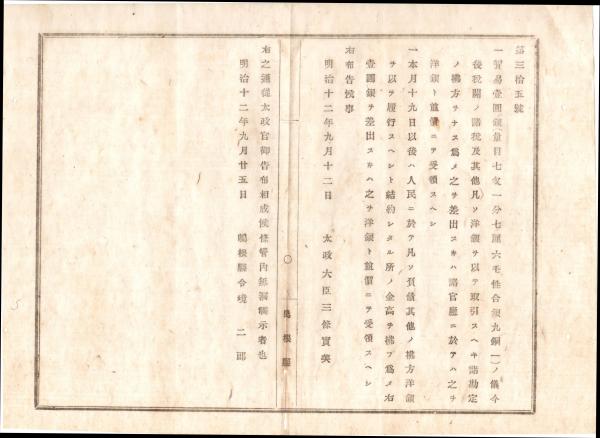 第三拾五號
一貿易壹圓銀(量目七匁一分七厘六毛性合銀九銅一)ノ儀今
後税關ノ諸税及其他凡ソ洋銀ヲ以テ取引スヘキ諸勘定
ノ拂方ヲナス爲メ之ヲ差出スキハ諸官廳ニ於テハ之ヲ
洋銀ト並價ニテ受領スヘシ
一本月十九日以後ハ人民ニ於テ凡ソ負債其他ノ拂方洋銀
ヲ以テ履行スヘシト結約シタル所ノ金高ヲ拂フ爲メ右
壹圓銀ヲ差出スキハ之ヲ洋銀ト並價ニテ受領スヘシ
右布告候事
明治十二年九月十二日 太政大臣三條實美
島根縣
右之通從太政官御告布相成候條管内無漏觸示者也
明治十二年九月廿五日 島根縣令境 二郎